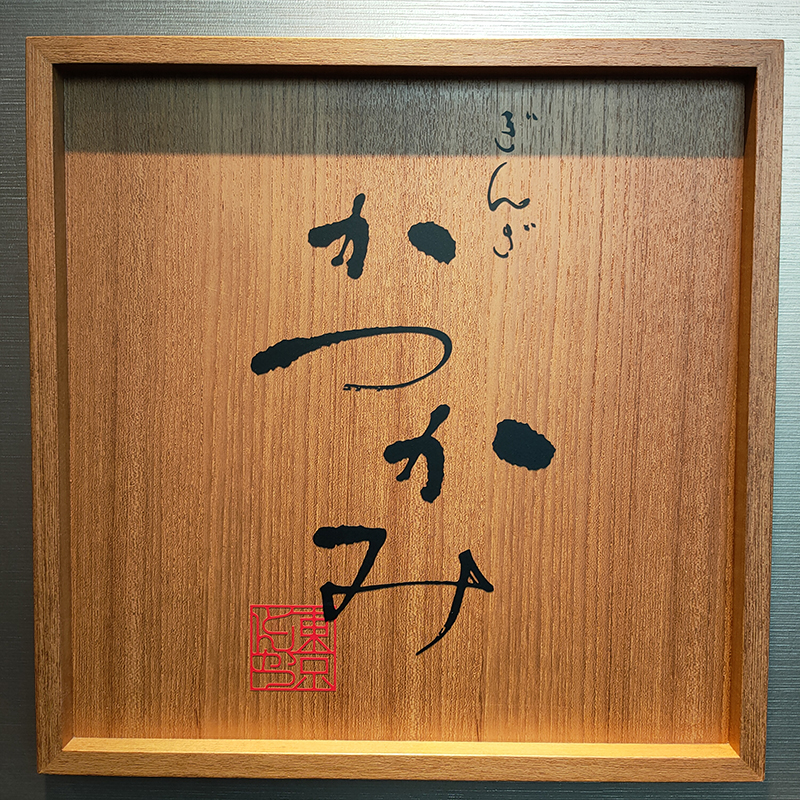 ぎんざ
かつかみ
東京
とんかつ